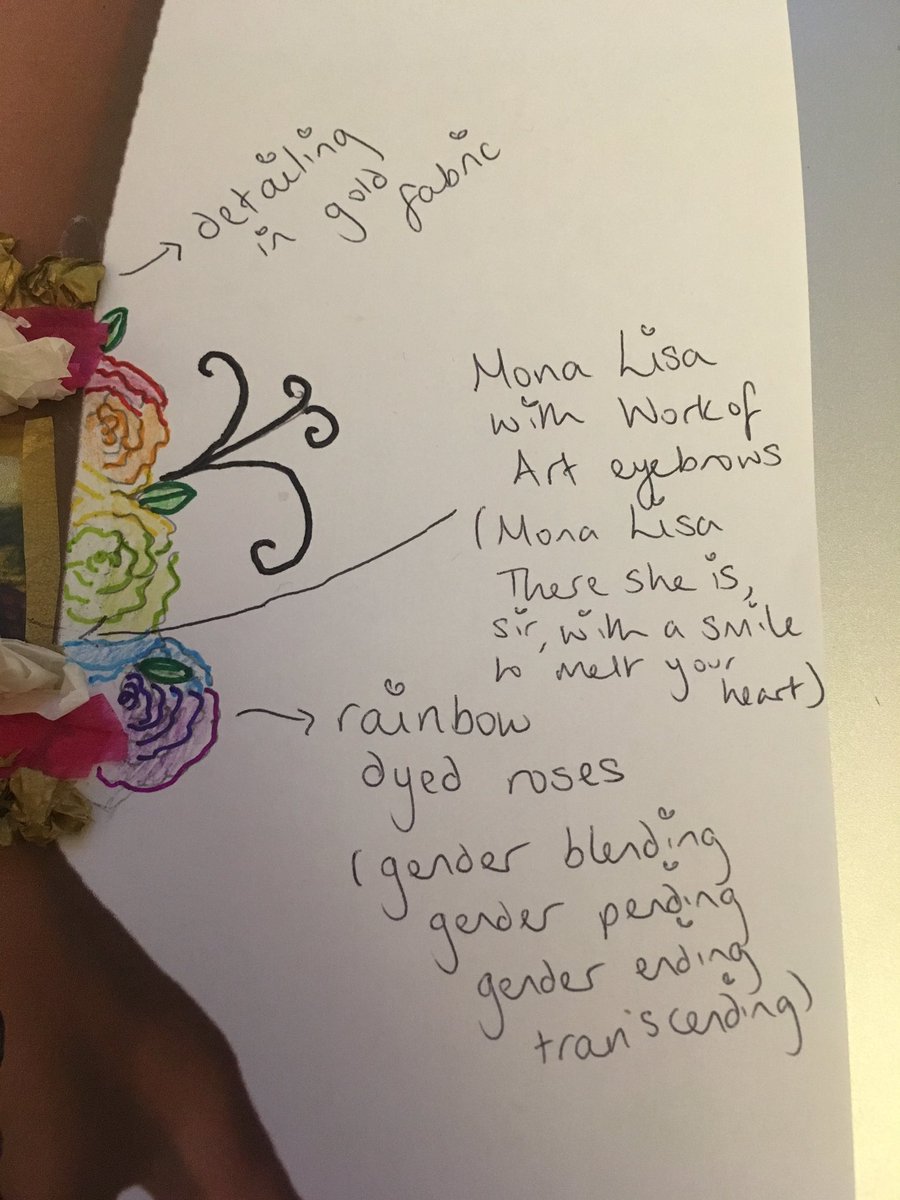 detailing
in gold
fabric
Mona Lisa
with Work of
Art eyebrows
(Mona Lisa
There she is,
sir, with a smile
to melt your
heart)
rainbow
dyed roses
(gender blending
gender pending
gender ending
tran'scending)